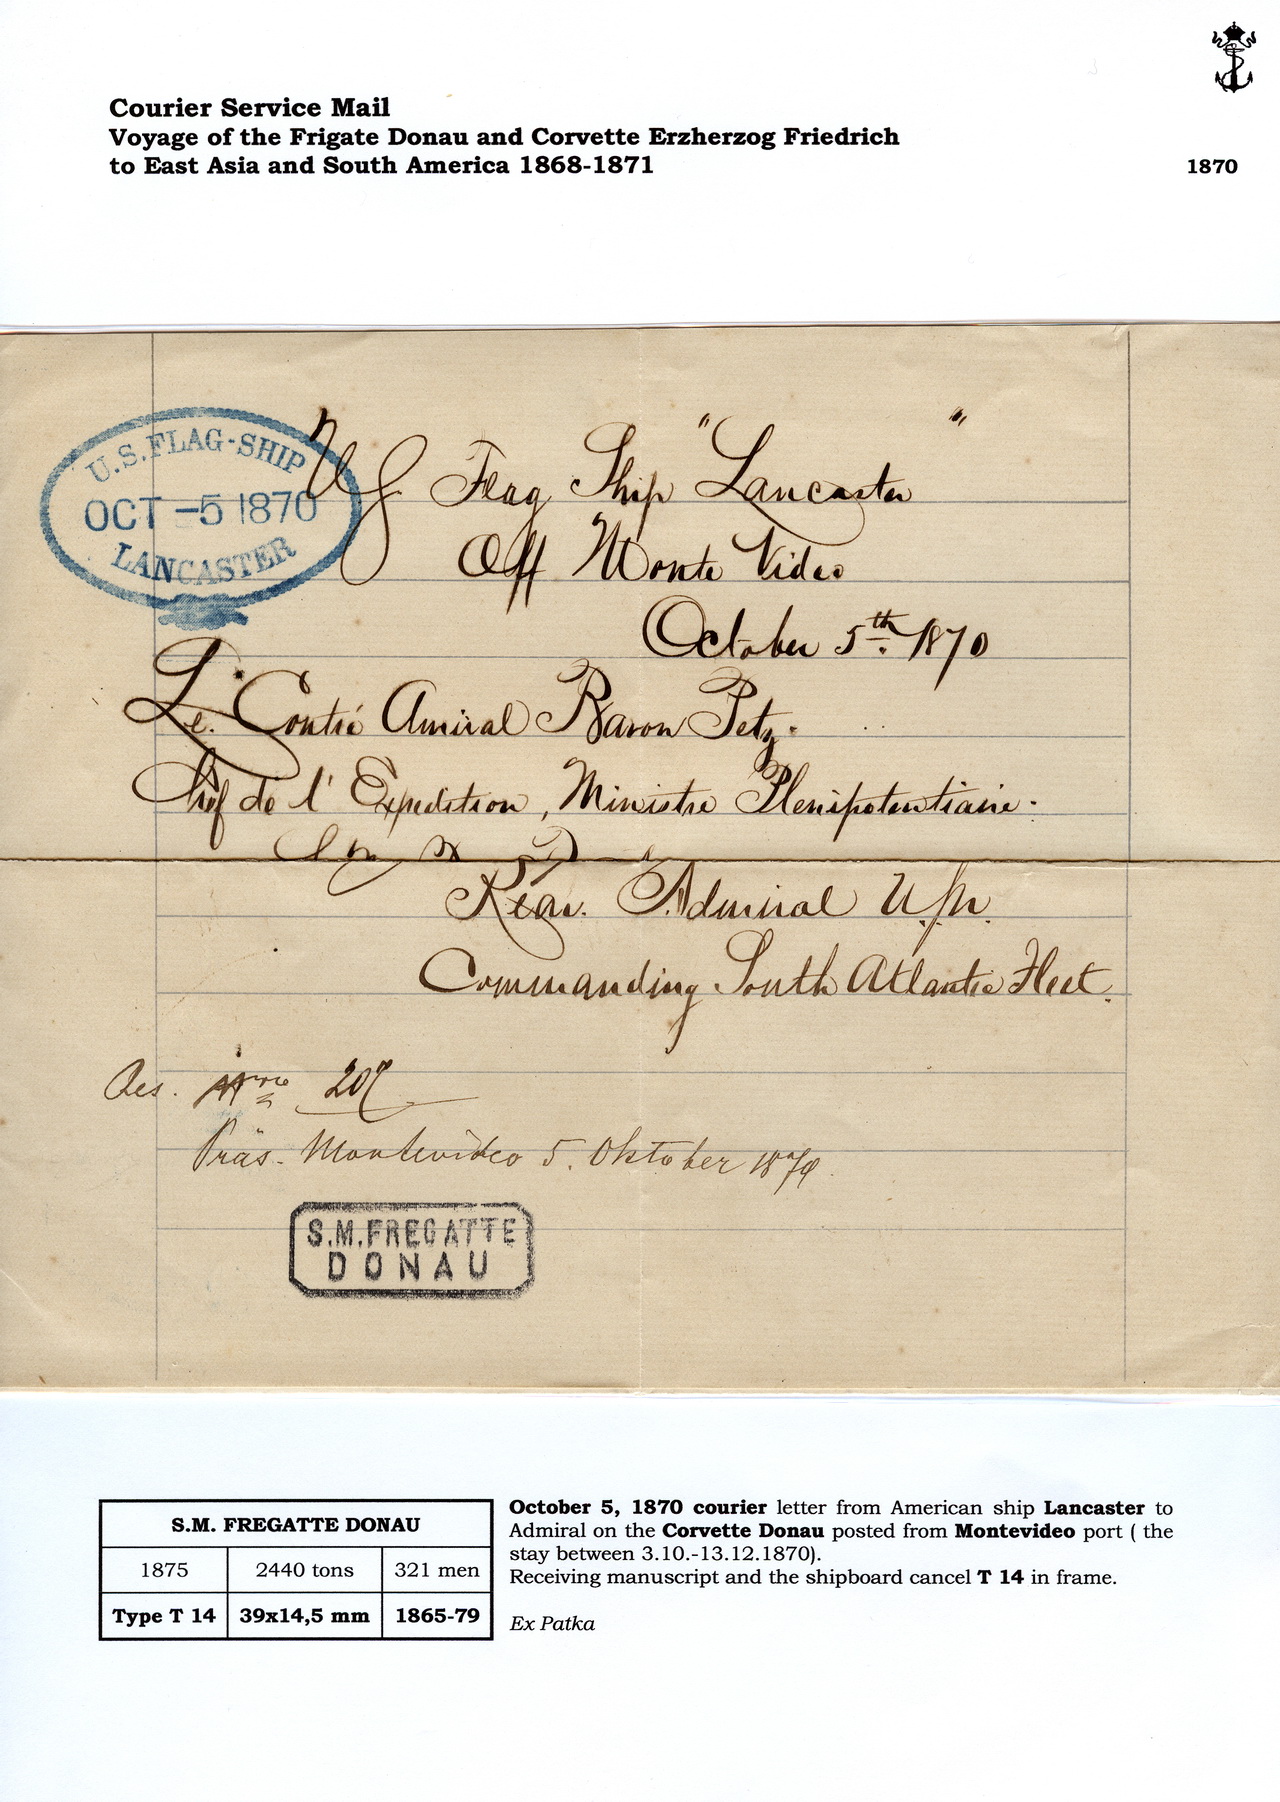 Courier Service Mail
Voyage of the Frigate Donau and Corvette Erzherzog Friedrich
to East Asia and South America 1868-1871
1870
U.S. FLAG-SHIP
OCT -5 1870
LANCASTER
U S Flag Ship "Lancaster"
Off Monte Video
October 5th 1870
Le. Contré Amiral Baron Petz.
Chef de l' Expedition, Ministre Plenipotentiaire.
Rear. Admiral U.S.N.
Commanding South Atlantic Fleet.
Res. 207
Präs. Montevideo 5. Oktober 1870.
S.M. FREGATTE
DONAU
S.M. FREGATTE DONAU
1875 2440 tons 321 men
Type T 14 39x14,5 mm 1865-79
October 5, 1870 courier letter from American ship Lancaster to
Admiral on the Corvette Donau posted from Montevideo port ( the
stay between 3.10.-13.12.1870).
Receiving manuscript and the shipboard cancel T 14 in frame.
Ex Patka